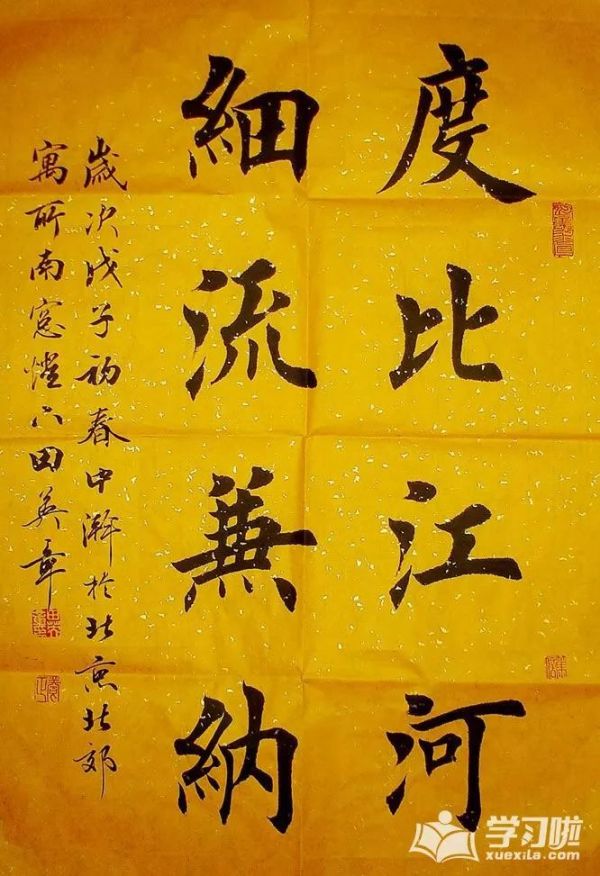 度比江河
細流兼納
歲次戊子初春中澣於北京北郊
寓所南窗燈下田英章
学习啦
xuexila.com